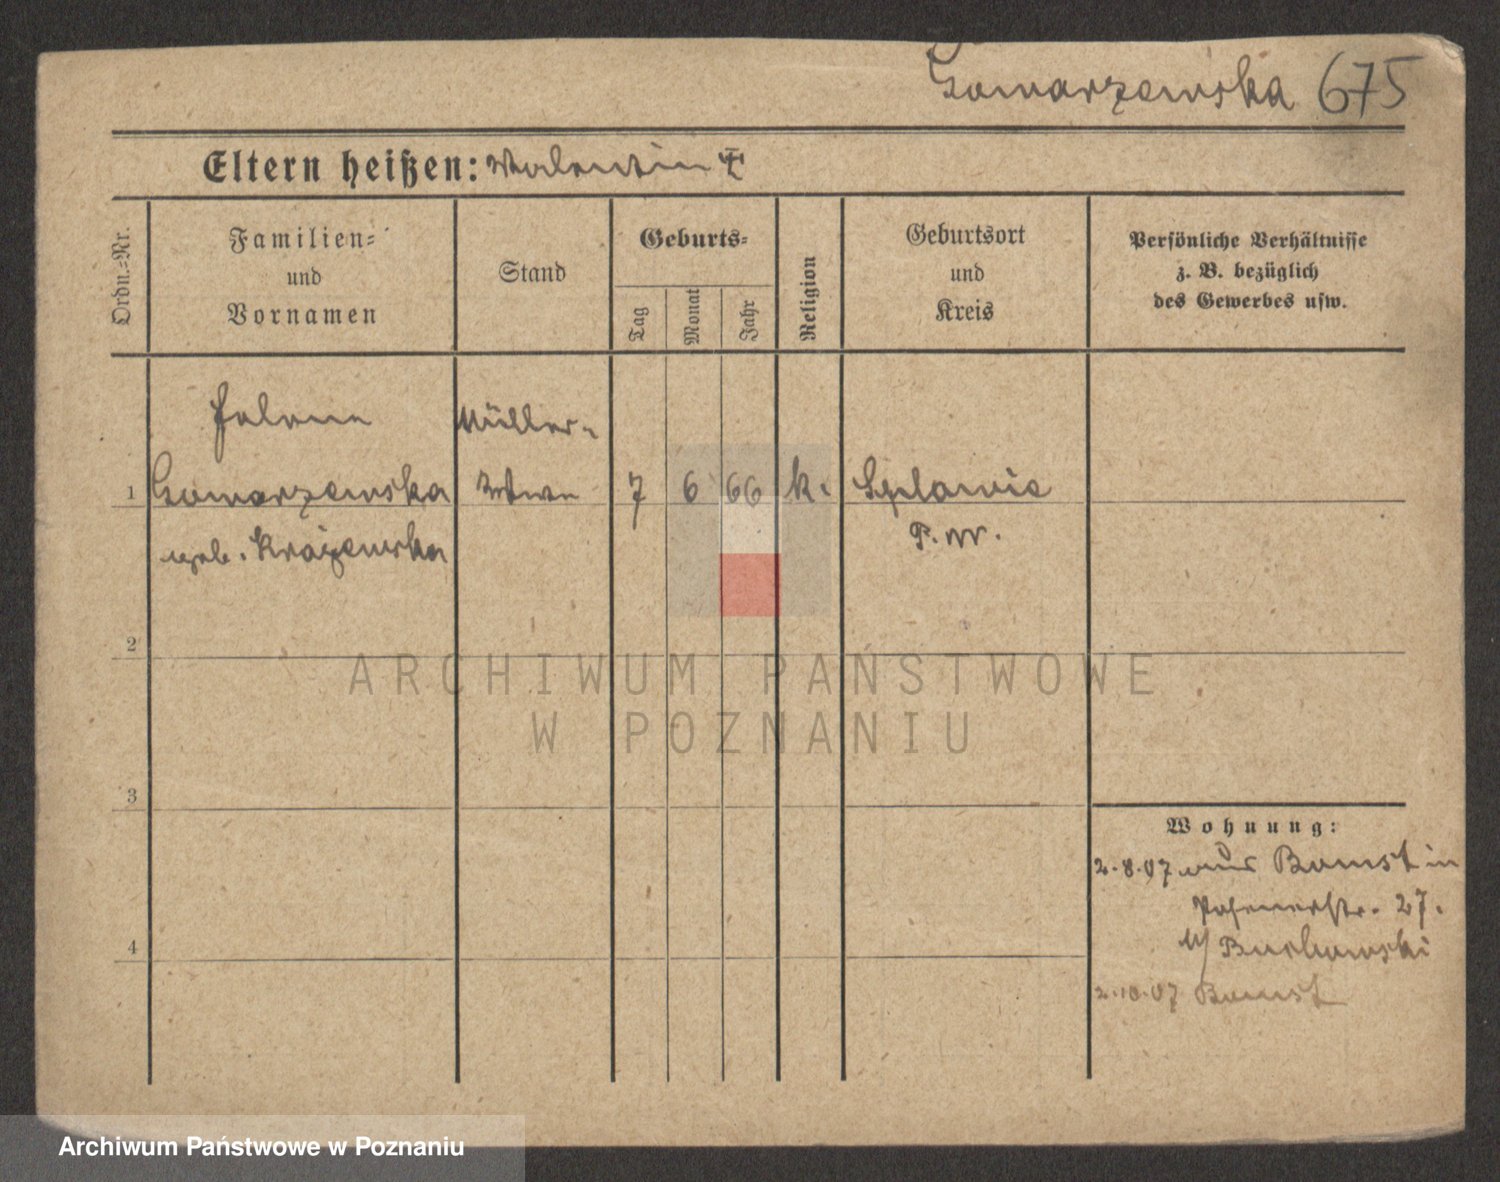 Gowarzewska 675
Eltern heißen: Valentin
Ordn.-Nr.
Familien-
und
Vornamen
Stand
Geburts-
Tag
Monat
Jahr
Religion
Geburtsort
und
Kreis
Persönliche Verhältnisse
z. B. bezüglich
des Gewerbes usw.
Helene Müller-
1 Gowarzewska Witwe 7 6 66 k.
geb. Krajewska P. W.
2
ARCHIWUM PAŃSTWOWE
W POZNANIU
3
Wohnung:
2.8.07 aus Bomst in
Posenerstr. 27.
Buchowski
4
2.10.07 Bomst
Archiwum Państwowe w Poznaniu